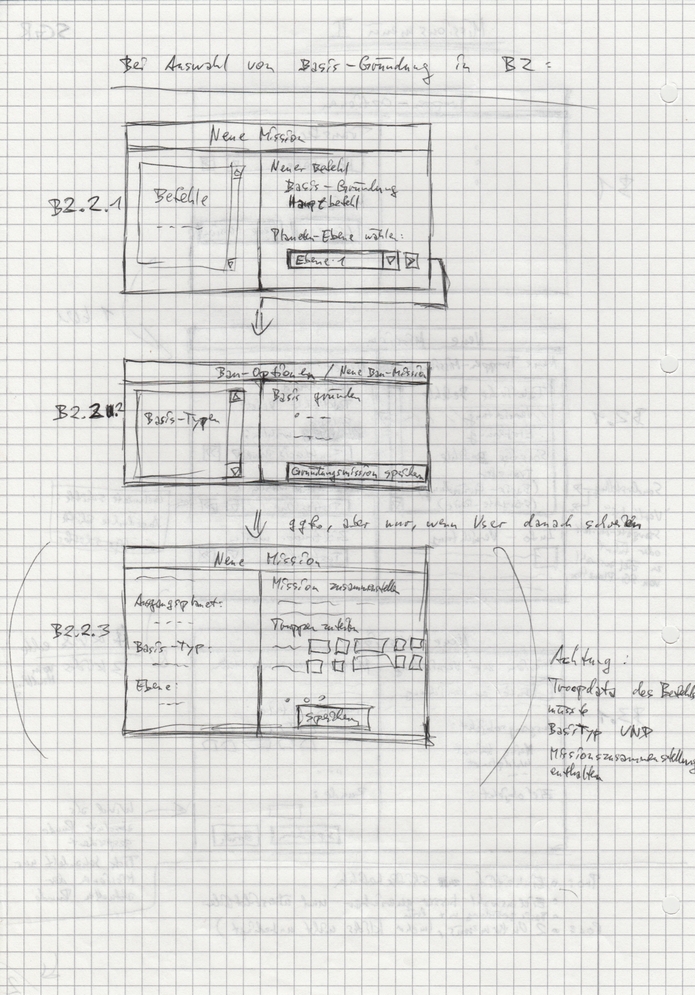 Bei Auswahl von Basis-Gründung in B2:
Neue Mission
B2.2.1
Befehle
Neuer Befehl
Basis-Gründung
Hauptbefehl
Planeten-Ebene wählen:
Ebene 1
Bau-Optionen / Neue Bau-Mission
B2.2.2
Basis-Typen
Basis gründen
Gründungsmission speichern
ggfs, aber nur, wenn User danach schreien
Neue Mission
B2.2.3
Ausgangsplanet:
Basis-Typ:
Ebene:
Mission zusammenstellen
Truppen zuteilen
Speichern
Achtung:
Troopdata des Befehls
müsste
BasisTyp UND
Missionszusammenstellung
enthalten